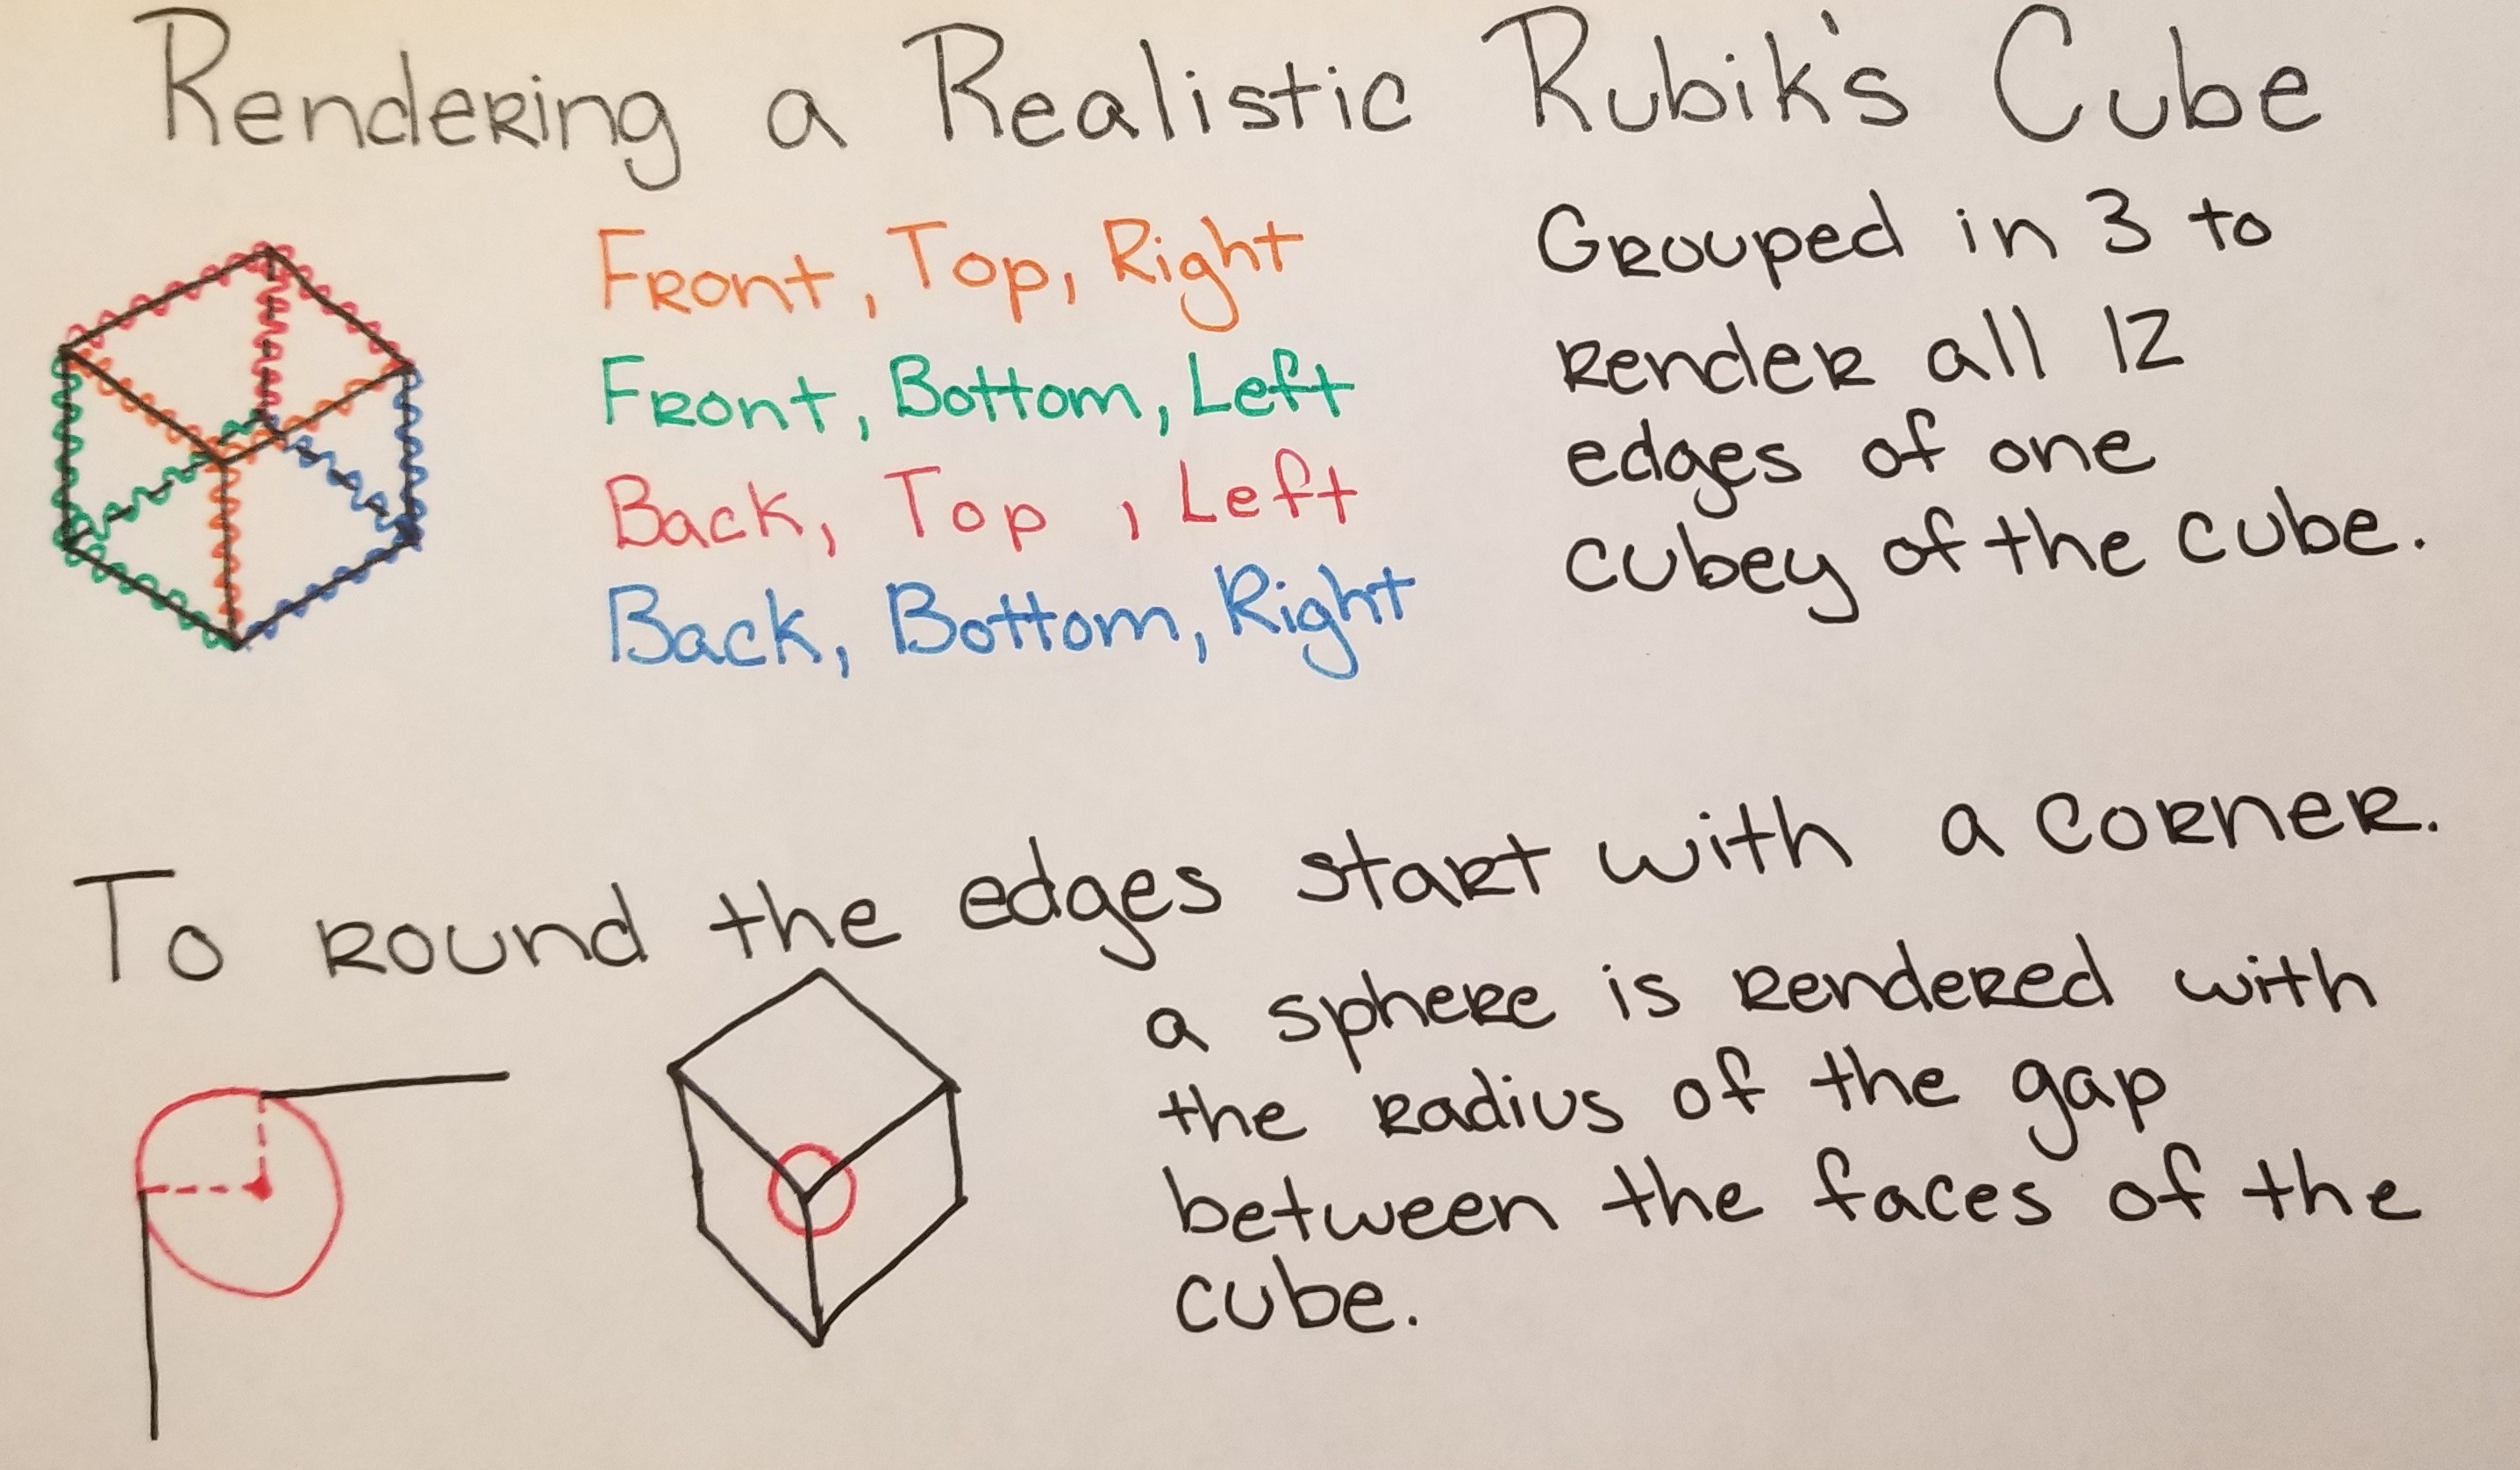 Rendering a Realistic Rubik's Cube
Front, Top, Right
Front, Bottom, Left
Back, Top, Left
Back, Bottom, Right
Grouped in 3 to
render all 12
edges of one
cubey of the cube.
To round the edges start with a corner.
a sphere is rendered with
the radius of the gap
between the faces of the
cube.